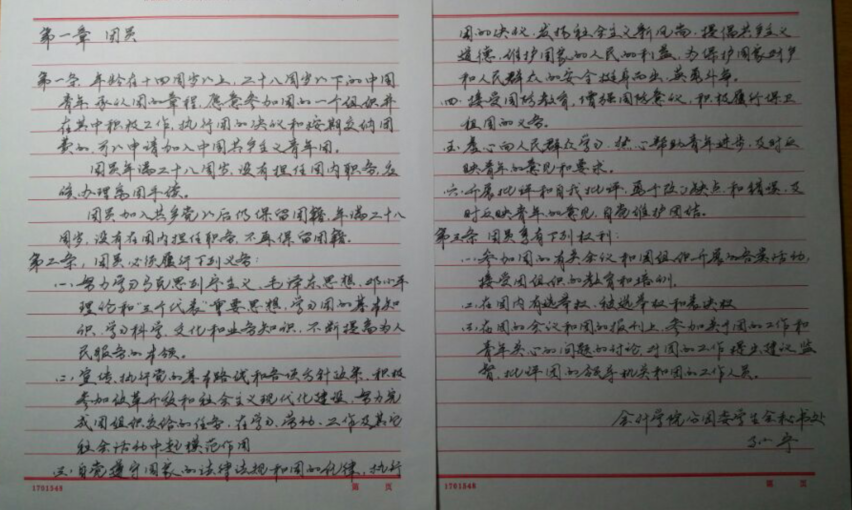 第一章 团员
第一条 年龄在十四周岁以上，二十八周岁以下的中国
青年承认团的章程，愿意参加团的一个组织并
在其中积极工作，执行团的决议和按期交纳团
费的，可以申请加入中国共产主义青年团。
团员年满二十八周岁，没有担任团内职务，应
该办理离团手续。
团员加入共产党以后仍保留团籍，年满二十八
周岁，没有在团内担任职务，不再保留团籍。
第二条，团员必须履行下列义务：
一、努力学习马克思列宁主义，毛泽东思想，邓小平
理论和"三个代表"重要思想，学习团的基本知
识，学习科学、文化和业务知识，不断提高为人
民服务的本领。
二、宣传、执行党的基本路线和各项方针政策，积极
参加改革开放和社会主义现代化建设，努力完
成团组织交给的任务，在学习、劳动、工作及其它
社会活动中起模范作用
三、自觉遵守国家的法律法规和团的纪律，执行
1701548 第 页
团的决议，发扬社会主义新风尚，提倡共产主义
道德，维护国家的人民的利益，为保护国家财产
和人民群众的安全挺身而出，英勇斗争。
四、接受国防教育，增强国防意识，积极履行保卫
祖国的义务。
五、虚心向人民群众学习，热心帮助青年进步，及时反
映青年的意见和要求。
六、开展批评和自我批评，勇于改正缺点和错误，及
时反映青年的意见，自觉维护团结。
第三条 团员享有下列权利：
一、参加团的有关会议和团组织开展的各类活动，
接受团组织的教育和培训。
二、在团内有选举权、被选举权和表决权
三、在团的会议和团的报刊上，参加关于团的工作和
青年关心的问题的讨论，对团的工作提出建议，监
督、批评团的领导机关和团的工作人员。
学院分团委学生会秘书处
1701548 第 页